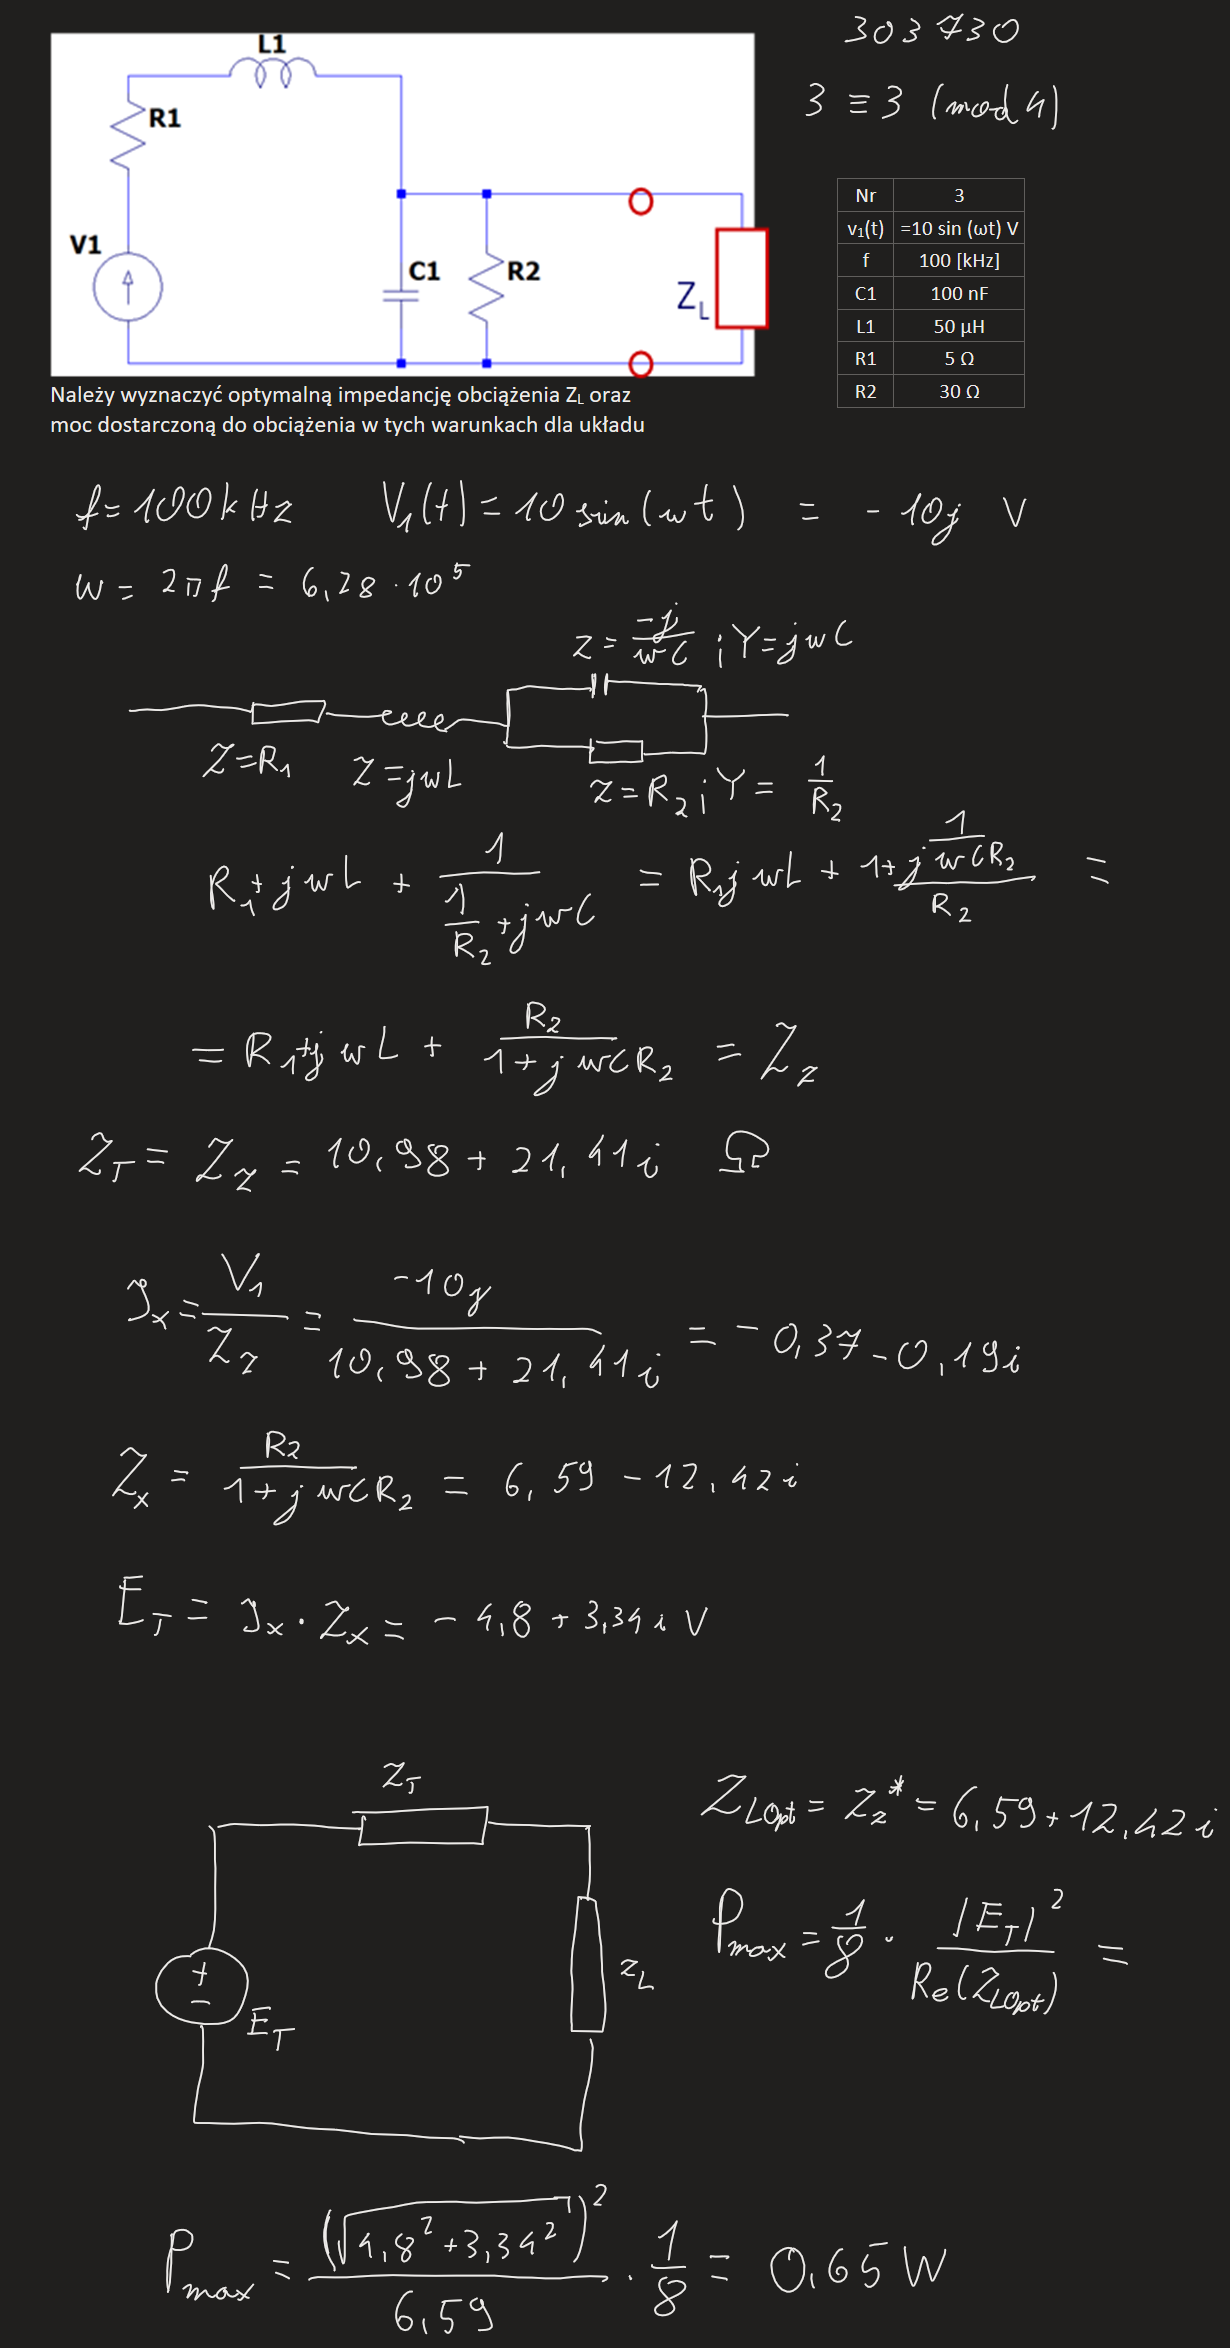 303730
3 ≡ 3 (mod 4)
L1
R1
V1
C1
R2
Z_L
Nr 3
v₁(t) =10 sin (ωt) V
f 100 [kHz]
C1 100 nF
L1 50 μH
R1 5 Ω
R2 30 Ω
Należy wyznaczyć optymalną impedancję obciążenia Z_L oraz
moc dostarczoną do obciążenia w tych warunkach dla układu
f = 100 kHz V₁(t) = 10 sin(wt) = -10j V
w = 2πf = 6,28 · 10⁵
z = -j/wC ; Y = jwC
Z = R₁ Z = jwL z = R₂ ; Y = 1/R₂
R₁ + jwL + 1/(1/R₂ + jwC) = R₁jwL + (1 + j 1/wCR₂)/R₂ =
= R₁ + jwL + R₂/(1 + jwCR₂) = Z_z
Z_T = Z_z = 10,98 + 21,41i Ω
I_x = V₁/Z_z = -10j/(10,98 + 21,41i) = -0,37 - 0,19i
Z_x = R₂/(1 + jwCR₂) = 6,59 - 12,42i
E_T = I_x · Z_x = -4,8 + 3,34i V
Z_T
Z_LOpt = Z_z* = 6,59 + 12,42i
P_max = 1/8 · |E_T|²/Re(Z_LOpt) =
+
-
E_T
Z_L
P_max = (√(4,8² + 3,34²))²/6,59 · 1/8 = 0,65 W